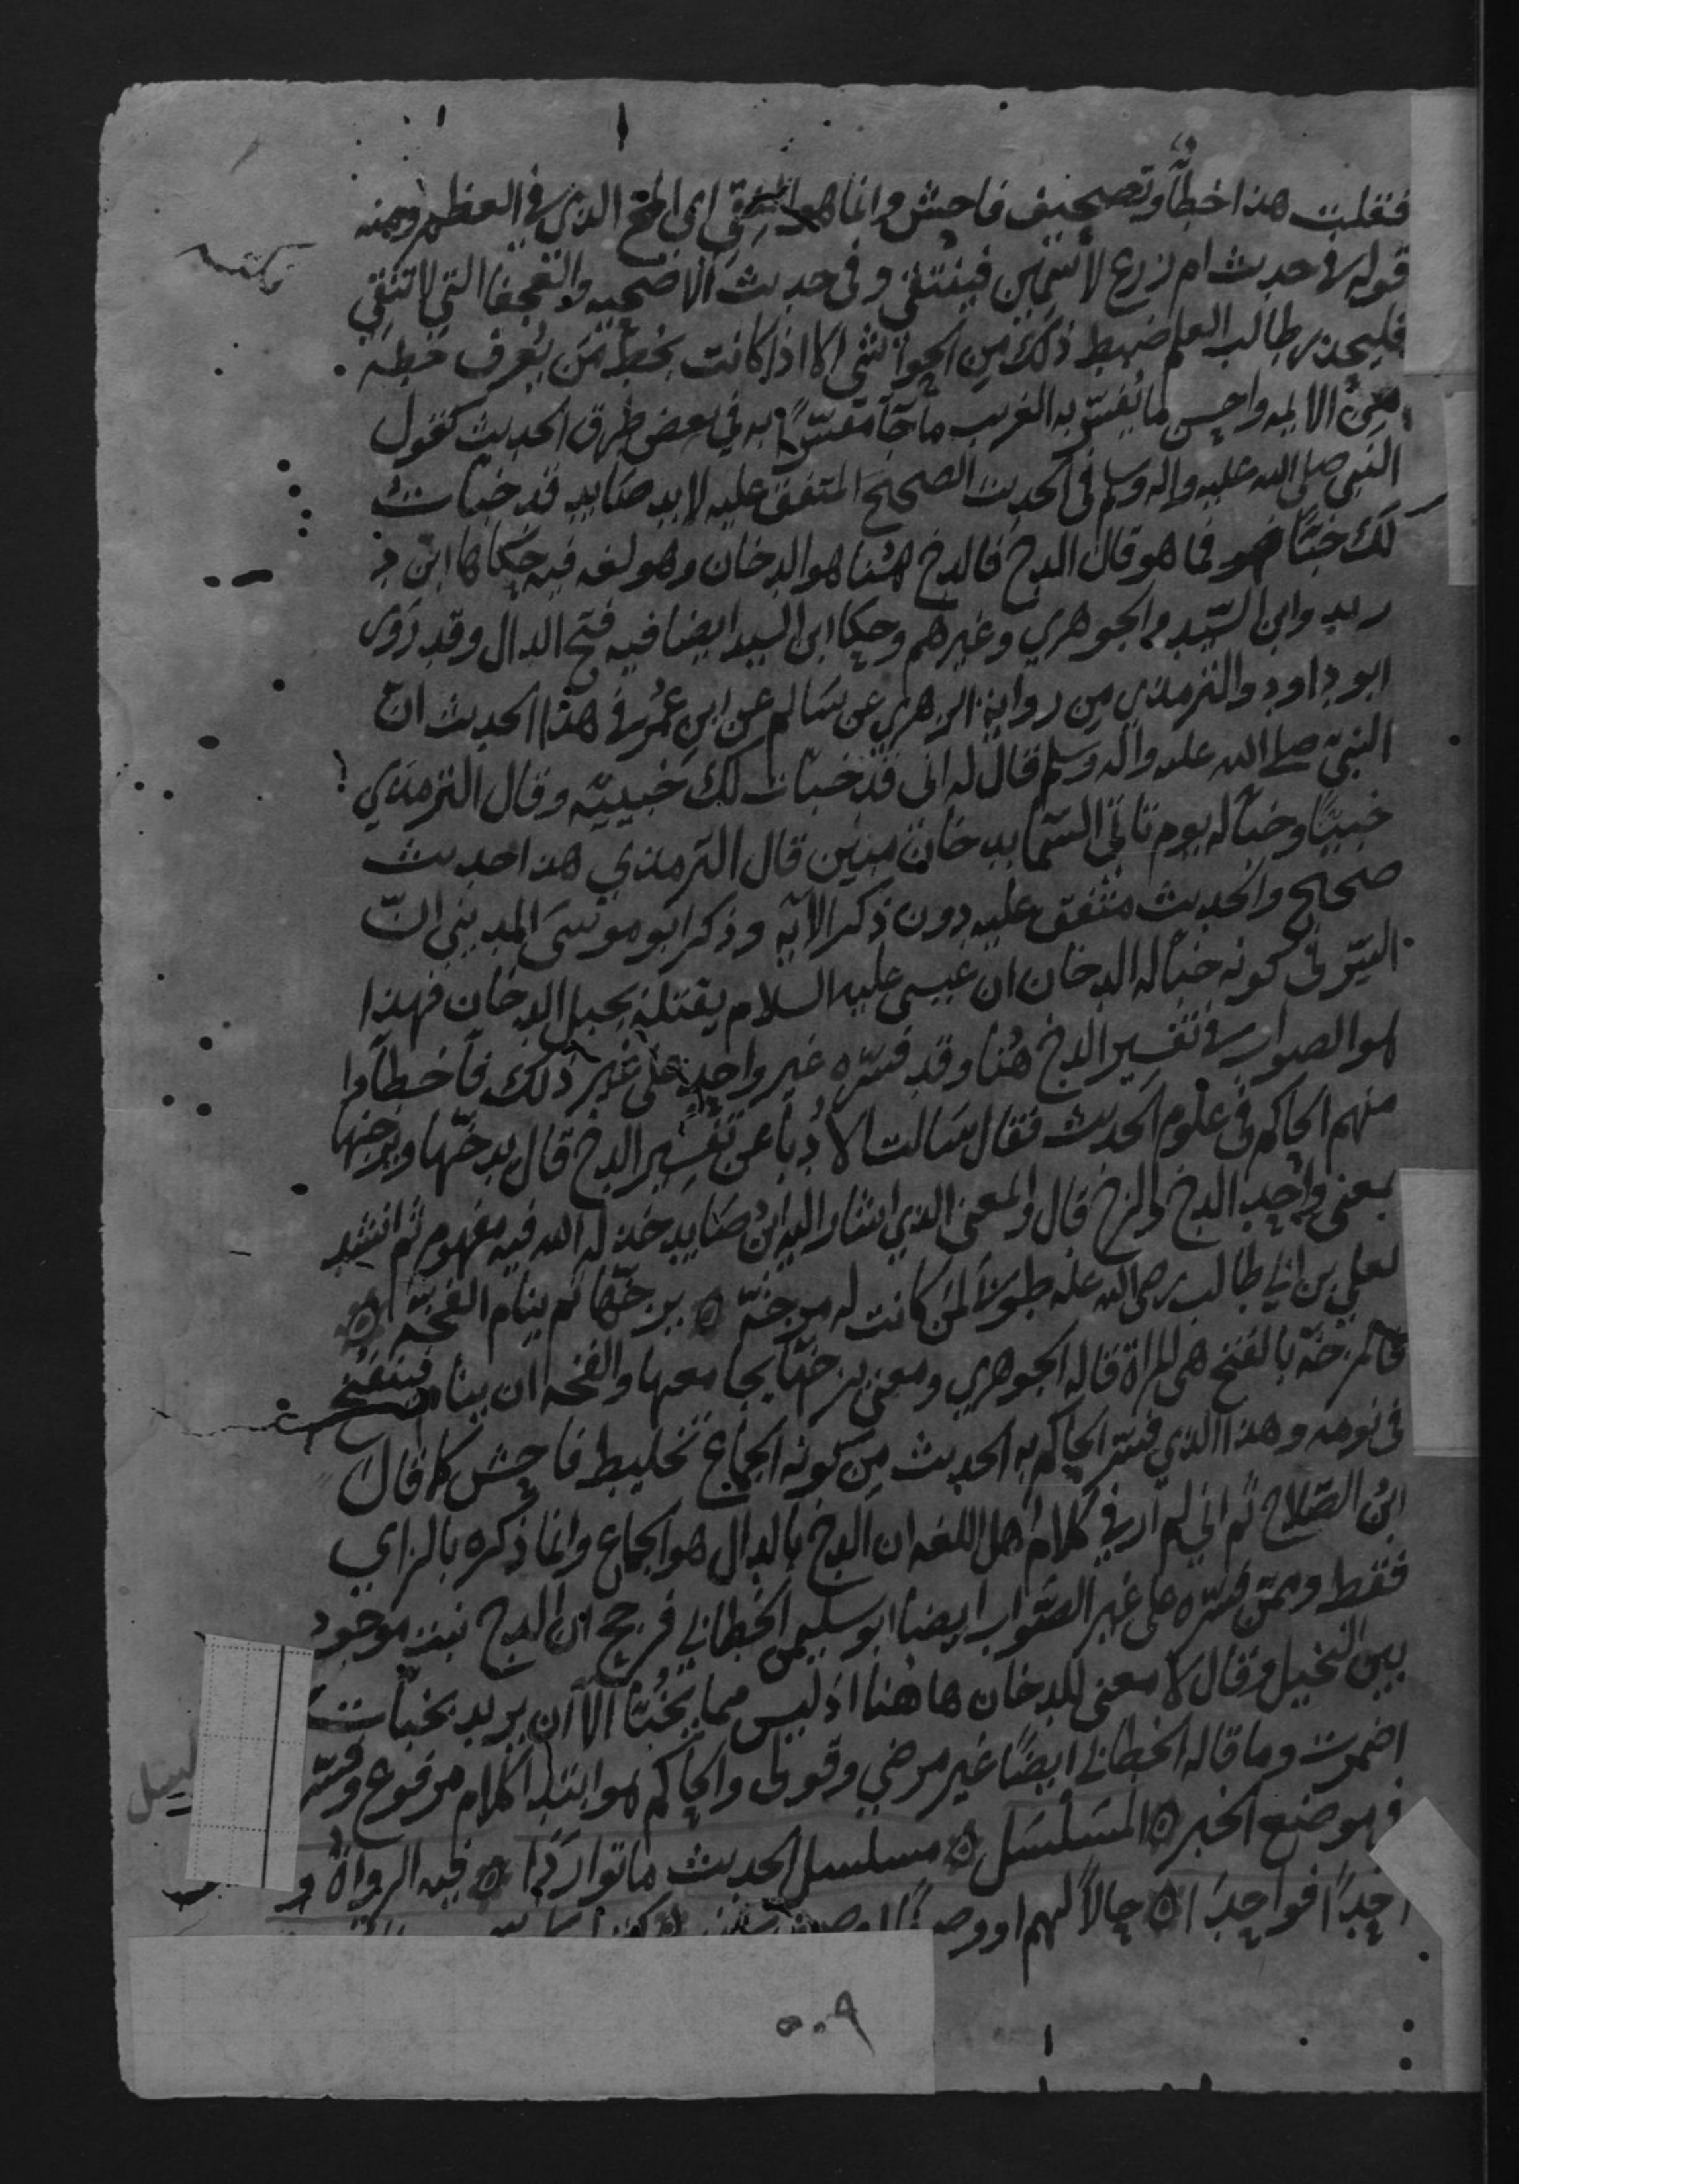 فقلت هذا خطأ وتصحيف فاحش وانما هو النقي اي المخ الذي في العظم ومنه
قوله في حديث ام زرع لا سمين فينتقى وفي حديث الاضحيه والعجفا التي لا تنقي
فليحذر طالب العلم ضبط ذلك من الحواشي الا اذا كانت بخط من يعرف خطه
من الايمه واحسن ما يفسّر به الغريب ما جآ مفسّرًا به في بعض طرق الحديث كقول
النبي صلى الله عليه واله وسلم في الحديث الصحيح المتفق عليه لابد صايد قد خبات
لك خبئًا فما هو قال الدخ فالدخ هُنا هو الدخان وهو لغه فيه حكاها ابن د
ريد وابن السّيد والجوهري وغيرهم وحكا ابن السيد ايضا فيه فتح الدال وقد روى
ابو داود والترمذي من رواية الزهري عن سالم عن ابن عمر في هذا الحديث انّ
النبيّ صلى الله عليه واله وسلم قال له اني قد خبات لك خبيئه وقال الترمذي
خبيئًا وخبأ له يوم تاتي السّما بدخان مبين قال الترمذي هذا حديث
صحيح والحديث متفق عليه دون ذكر الايه وذكر ابو موسَى المديني انّ
السّر في كونه خبأ له الدخان ان عيسى عليه السلام يقتله بجبل الدخان فهذا
هو الصواب في تفسير الدخ هُنا وقد فسّره غير واحدٍ على غير ذلك فأخطأوا
منهم الحاكم في علوم الحديث فقال سَالت الاُدبا عن تفسير الدخ قال يدخّها ويزخها
بمعنى واحد الدخ والزخ قال والمعنى الذي اشار اليه ابن صَايد خذله الله فيه مفهوم ثم انشد
لعلي بن ابي طالب رضي الله عنه طوبَى لمن كانت له مزخّه ۞ يزخّها ثم ينام الفخّه ۞
فالمزخّه بالفتح هي المراة قاله الجوهري ومعنى يزخّها يجامعها والفخه ان ينام فينفخ
في نومه وهذا الذي فسّر الحاكم به الحديث مِن كونه الجماع تخليط فاحش كما قال
ابن الصّلاح ثم اني لم ار في كلام اهل اللغه ان الدخ بالدال هو الجماع وانما ذكره بالزاي
فقط وممّن فسّره على غير الصّواب ايضا ابو سليمن الخطابي فرجح ان الدخ نبت موجود
بين النخيل وقال لا معنى للدخان ها هُنا اذ ليس مما يُخبّئا الّا ان يريد بخبّات
اضمرت وما قاله الخطابي ايضًا غير مرضي وقولى والحاكم هو ابتدا كلام مرفوع وفسّر
فهو ضع الخبر ۞ المسَلسَل ۞ مسلسل الحديث ما تواردَا ۞ فيه الرواةُ و
احِدًا فواحِدَا ۞ حالًا لهم او وصفًا
لبتل
٥٠٩